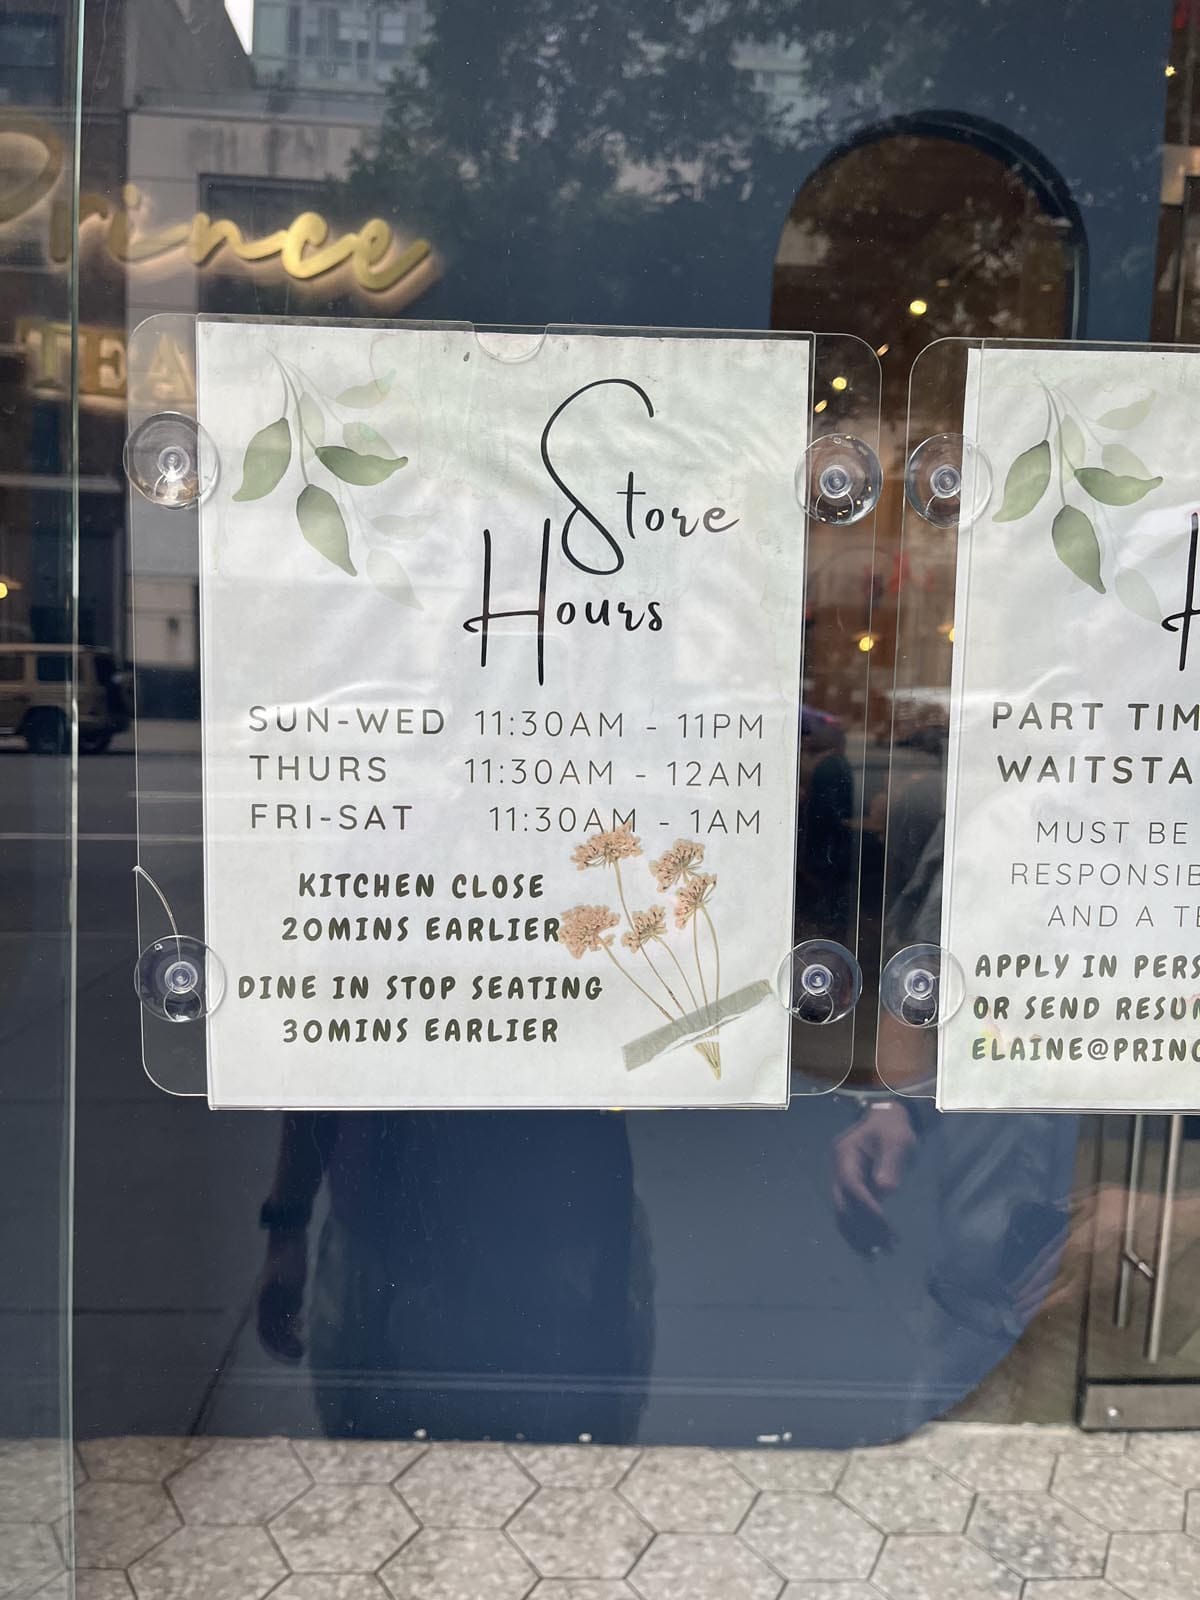 Prince
TEA
Store
Hours
SUN-WED 11:30AM - 11PM
THURS 11:30AM - 12AM
FRI-SAT 11:30AM - 1AM
KITCHEN CLOSE
20MINS EARLIER
DINE IN STOP SEATING
30MINS EARLIER
H
PART TIM
WAITSTA
MUST BE
RESPONSIB
AND A TE
APPLY IN PERS
OR SEND RESUM
ELAINE@PRINC